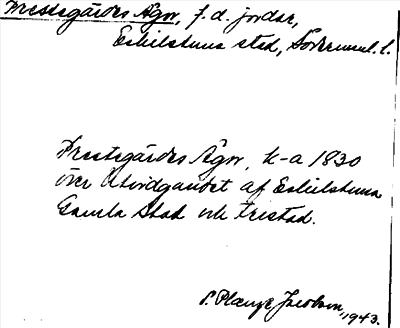 Prestegårdes Ägor, f.d. jordar,
Eskilstuna stad, Södermanl. l.
Prestegårdes Ägor, k-a 1830
över Utvidgandet af Eskilstuna
Gamla Stad och Fristad.
S. Plænge Jacobson, 1943.